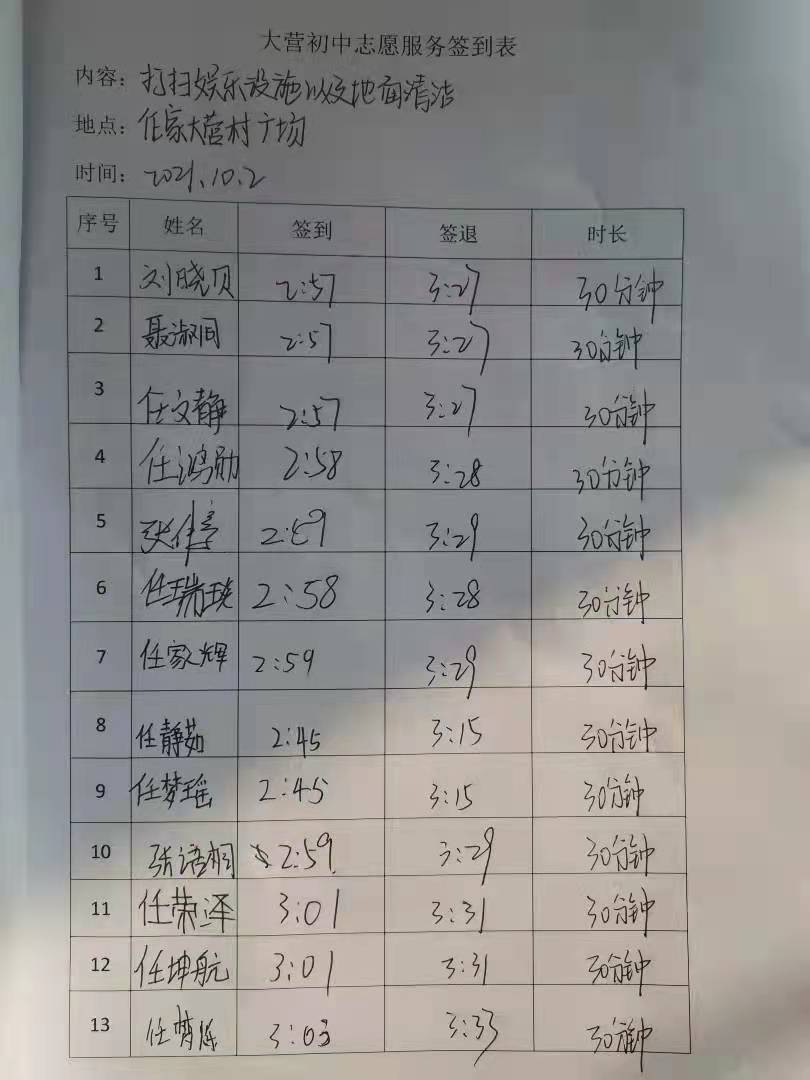 大营初中志愿服务签到表
内容：打扫娱乐设施以及地面清洁
地点：任家大营村广场
时间：2021.10.2
序号 姓名 签到 签退 时长
1 刘晓贝 2:57 3:27 30分钟
2 聂淑同 2:57 3:27 30分钟
3 任文静 2:57 3:27 30分钟
4 任鸿勋 2:58 3:28 30分钟
5 2:59 3:29 30分钟
6 任瑞琰 2:58 3:28 30分钟
7 任家辉 2:59 3:29 30分钟
8 任静茹 2:45 3:15 30分钟
9 任梦瑶 2:45 3:15 30分钟
10 张语桐 2:59 3:29 30分钟
11 任荣泽 3:01 3:31 30分钟
12 任坤航 3:01 3:31 30分钟
13 3:03 3:33 30分钟